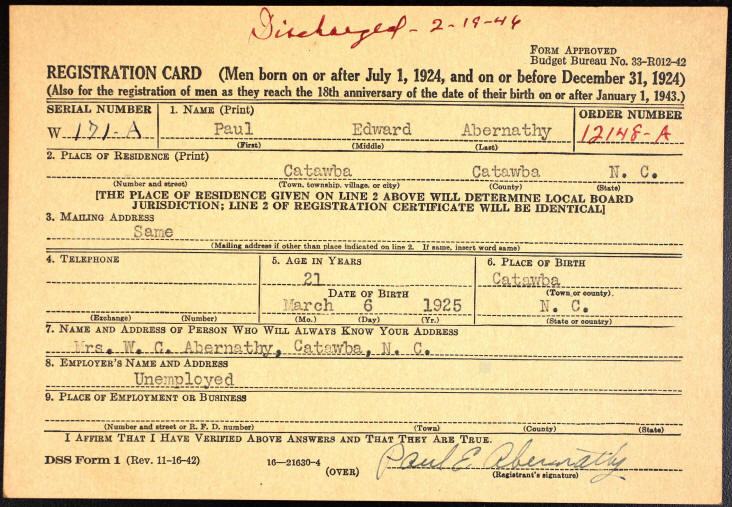 Discharged - 2-19-46
FORM APPROVED
Budget Bureau No. 33-R012-42
REGISTRATION CARD (Men born on or after July 1, 1924, and on or before December 31, 1924)
(Also for the registration of men as they reach the 18th anniversary of the date of their birth on or after January 1, 1943.)
SERIAL NUMBER 1. NAME (Print) ORDER NUMBER
W 171-A Paul Edward Abernathy 12148-A
(First) (Middle) (Last)
2. PLACE OF RESIDENCE (Print)
Catawba Catawba N. C.
(Number and street) (Town, township, village, or city) (County) (State)
[THE PLACE OF RESIDENCE GIVEN ON LINE 2 ABOVE WILL DETERMINE LOCAL BOARD
JURISDICTION; LINE 2 OF REGISTRATION CERTIFICATE WILL BE IDENTICAL]
3. MAILING ADDRESS
Same
(Mailing address if other than place indicated on line 2. If same, insert word same)
4. TELEPHONE 5. AGE IN YEARS 6. PLACE OF BIRTH
21 Catawba
DATE OF BIRTH (Town or county)
March 6 1925 N. C.
(Exchange) (Number) (Mo.) (Day) (Yr.) (State or country)
7. NAME AND ADDRESS OF PERSON WHO WILL ALWAYS KNOW YOUR ADDRESS
Mrs. W. C. Abernathy, Catawba, N. C.
8. EMPLOYER'S NAME AND ADDRESS
Unemployed
9. PLACE OF EMPLOYMENT OR BUSINESS
(Number and street or R. F. D. number) (Town) (County) (State)
I AFFIRM THAT I HAVE VERIFIED ABOVE ANSWERS AND THAT THEY ARE TRUE.
DSS Form 1 (Rev. 11-16-42) 16—21630-4 Paul E Abernathy
(OVER) (Registrant's signature)